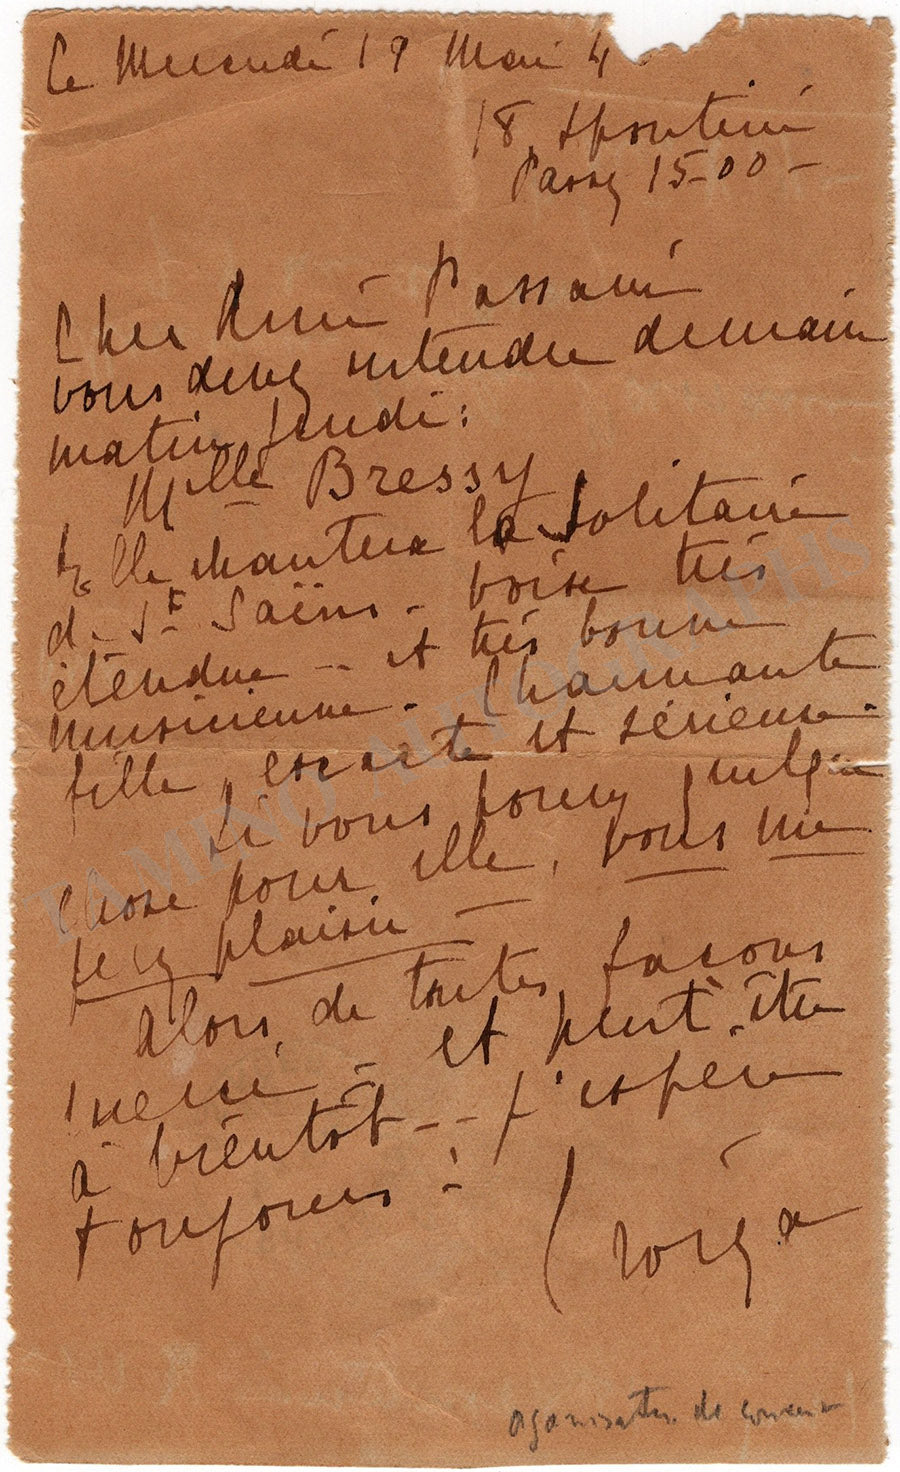 Le Mercredi 19 Mai 4
18, Spontini
Passy 15-00 -
Cher René Passani
vous devez entendre demain
matin Jeudi :
Mlle Bressy
Elle chantera la Solitaire
de St Saëns - voise très
étendue - et très bonne
musicienne. Charmante
fille, exacte et sérieuse.
Si vous pouvez quelque
chose pour elle, vous me
ferez plaisir -
Alors, de toutes façons
merci - et peut-être
à bientôt -- j'espère
toujours !
Croiza
oganisateur de concert
TAMINO AUTOGRAPHS